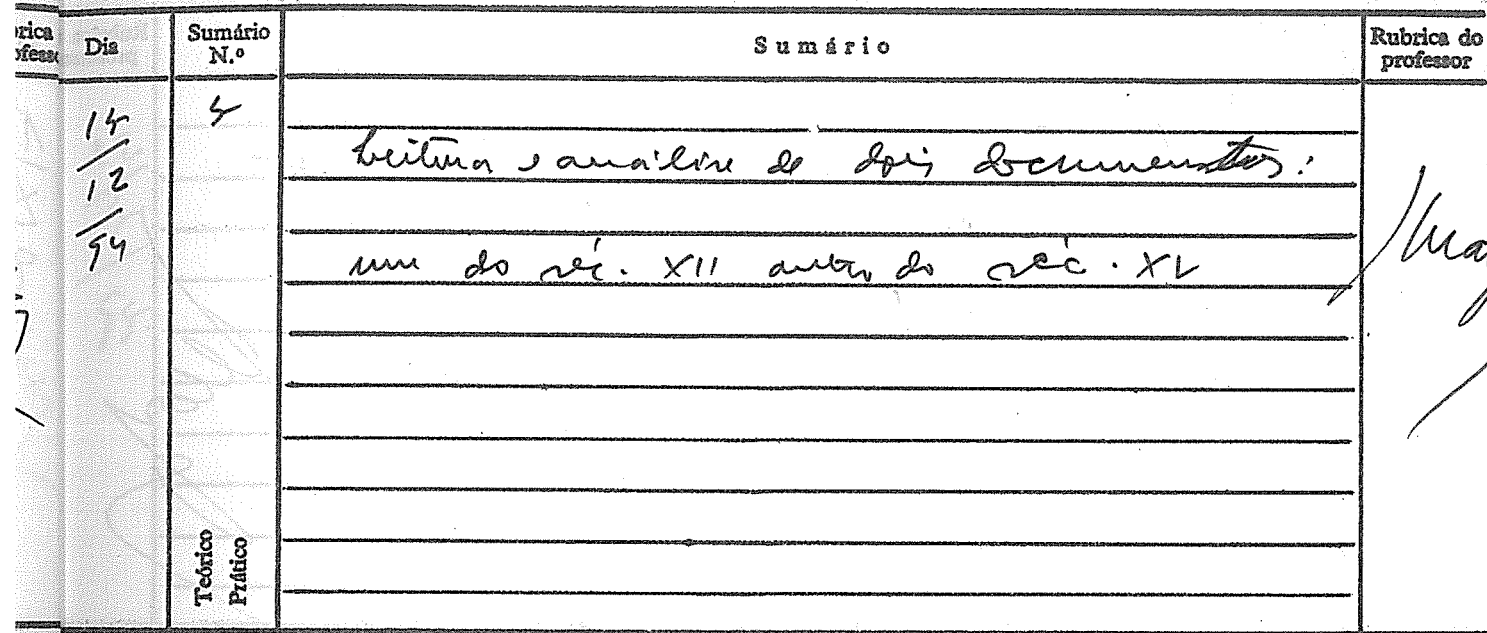 Dia
Sumário N.º
Sumário
Rubrica do professor
12
94
Leitura e análise de dois documentos:
um do séc. XII outro do séc. XV
Teórico
Prático